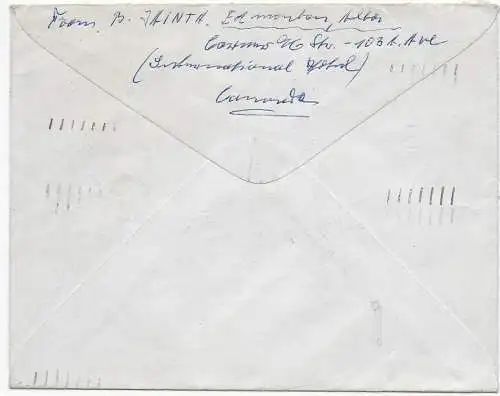 From B. JAINTA. Edmonton, Alba
Str. - 103 A. Ave
(International Hotel)
Canada